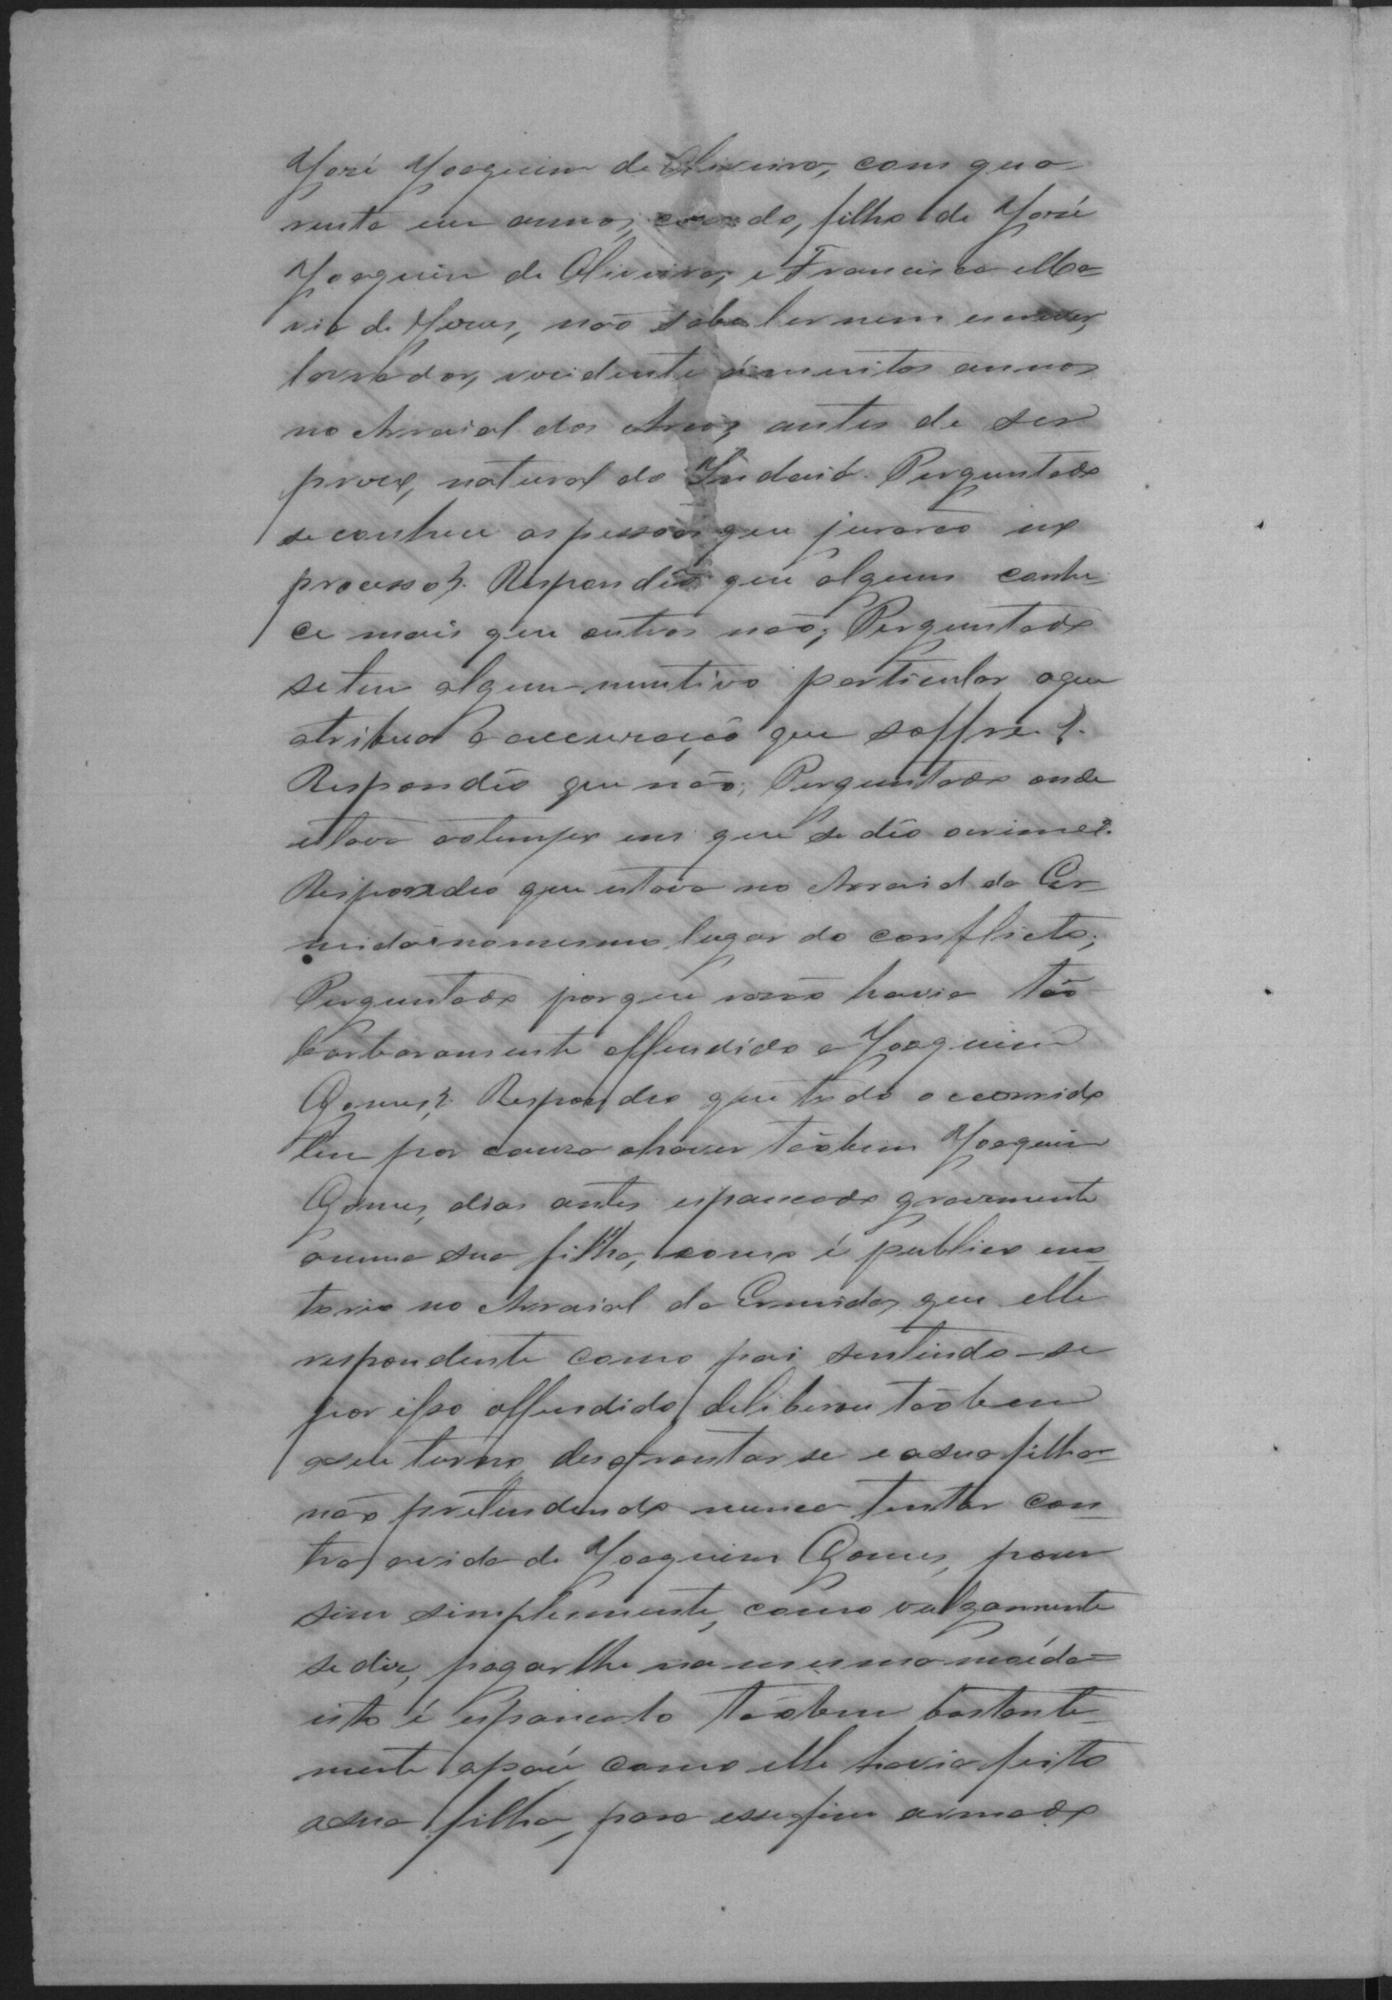 José Joaquim de Oliveira, com qua-
renta eum annos, casado, filho de José
Joaquim de Oliveira, e Francisca Ma=
ria de Jesus, não sabe ler nem escrever,
lavrador, recidente á muitos annos
no Arraial dos Arcos, antes de ser
prezo, natural do Indaiá. Perguntado
se conhece as pessoas que jurarão no
processo? Respondêo que alguns conhe-
ce mais que outros não; Perguntado
setem algum muutivo particular aque
atribua a accuração que soffre?.
Respondêo que não; Perguntado onde
estava aotempo em que se dêo ocrime?.
Respondeo que estava no Arraial da Er-
mida e nomesmo lugar do conflicto;
Perguntado porque rasão havia tão
barbaramente offendido a Joaquim
Gomes? Respondeo que tudo occorrido
teve por cauza ahaver tãobem Joaquim
Gomes, dias antes espancado gravemente
auma sua filha, como é publico eno=
torio no Arraial da Ermida, que elle
respondente como pai sentindo-se
por isso offendido, deliberou tãobem
aseu turno, desafrontar se e asua filha
não pretendendo nunca tentar con=
tra avida de Joaquim Gomes, porem
sim simplesmente, como vulgarmente
se diz, pagar lhe na mesma moéda=
isto é espancalo tãobem bastante=
mente apáo como elle havia feito
asua filha, para essefim armado